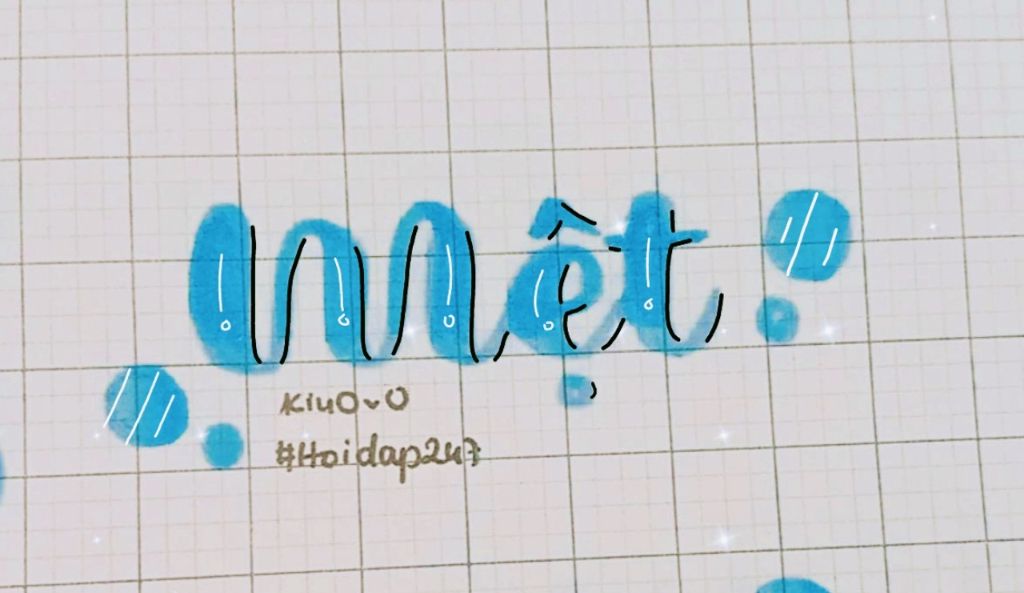 Mệt
KiuOvO
#Hoidap247